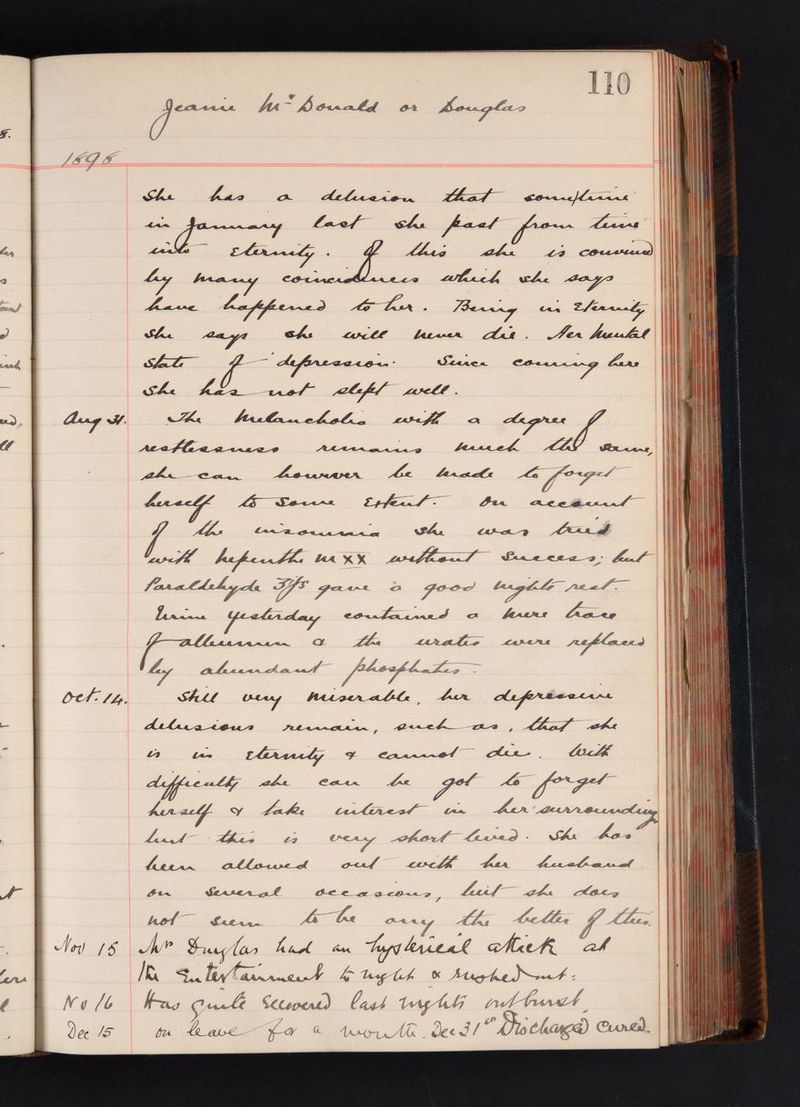 110
Jeanie McDonald or Douglas
1898
She has a delusion that sometime
in January last she past from time
into Eternity. Of this she is convinced
by many coincidences which she says
have happened to her. Being in Eternity
she says she will never die. Her Mental
State of depression. Since coming here
she has not slept well.
Aug 31. The Melancholia with a degree of
restlessness remains much the same,
she can however be made to forget
herself to some Extent. On account
of the insomnia she was tried
with Nepenthe m xx without success; but
Paraldehyde ʒifs gave a good nights rest.
Urine yesterday contained a mere trace
of albumen & the urates were replaced
by abundant phosphates.
Oct. 14. Still very miserable, her depressive
delusions remain, such as, that she
is in eternity & cannot die. With
difficulty she can be got to forget
herself & take interest in her surroundings
but this is very short lived. She has
been allowed out with her husband
on several occasions, but she does
not seem to be any the better of this.
Nov 15 Mrs Douglas had an hysterical attack at
the Entertainment to night & rushed out.
No 16 Has quite recovered last nights outburst
Dec 15 on leave for a month. Dec 31st Discharged Cured.